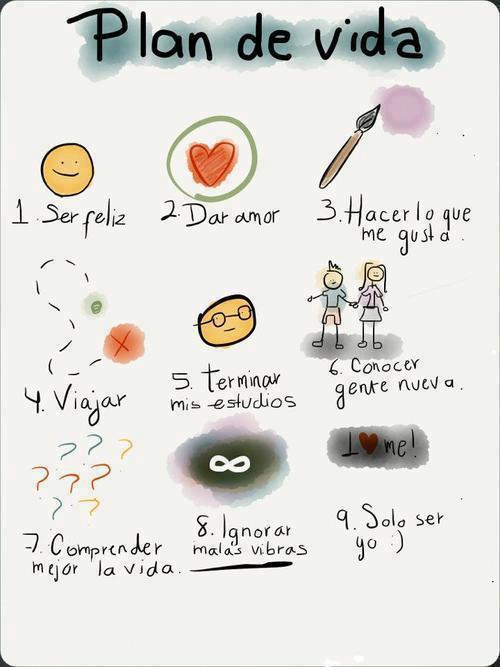 Plan de vida
1. Ser feliz
2. Dar amor
3. Hacer lo que
me gusta.
4. Viajar
5. terminar
mis estudios
6. Conocer
gente nueva.
I ♥ me!
7. Comprender
mejor la vida.
8. Ignorar
malas vibras
9. Solo ser
yo :)